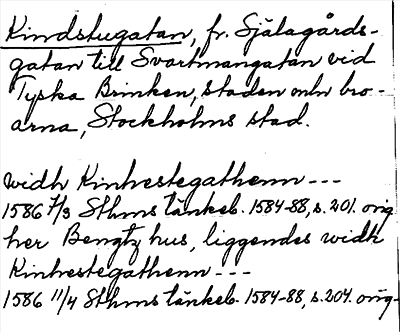 Kindstugatan, fr. Själagårds-
gatan till Svartmangatan vid
Tyska Brinken, staden mln bro-
arna, Stockholms stad.
widh Kinhestegathenn ---
1586 7/3 Sthms tänkeb. 1584-88, s. 201. orig
her Bengtz hus, liggendes widh
Kinhestegathenn ---
1586 11/4 Sthms tänkeb. 1584-88, s. 204. orig-